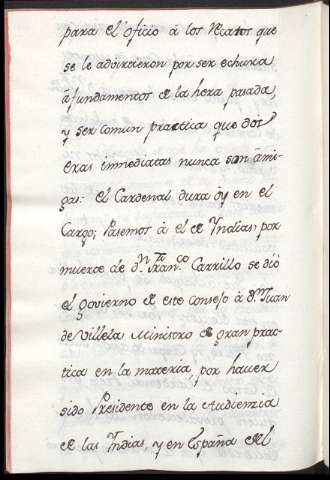 para el oficio á los Ucatos que
se le advirtieron por ser echura
á fundamentos de la hera pasada,
y ser comun practica que dos
eras immediatas nunca son ámi-
gas: el Cardenal dura óy en el
Cargo; Pasemos á el de Yndias; por
muerte de dn. Franco. Carrillo se dió
el Govierno de este consejo á dn. Juan
de Villela Ministro de gran prac-
tica en la materia, por haver
sido Presidente en la Audienzia
de las Yndias, y en España del